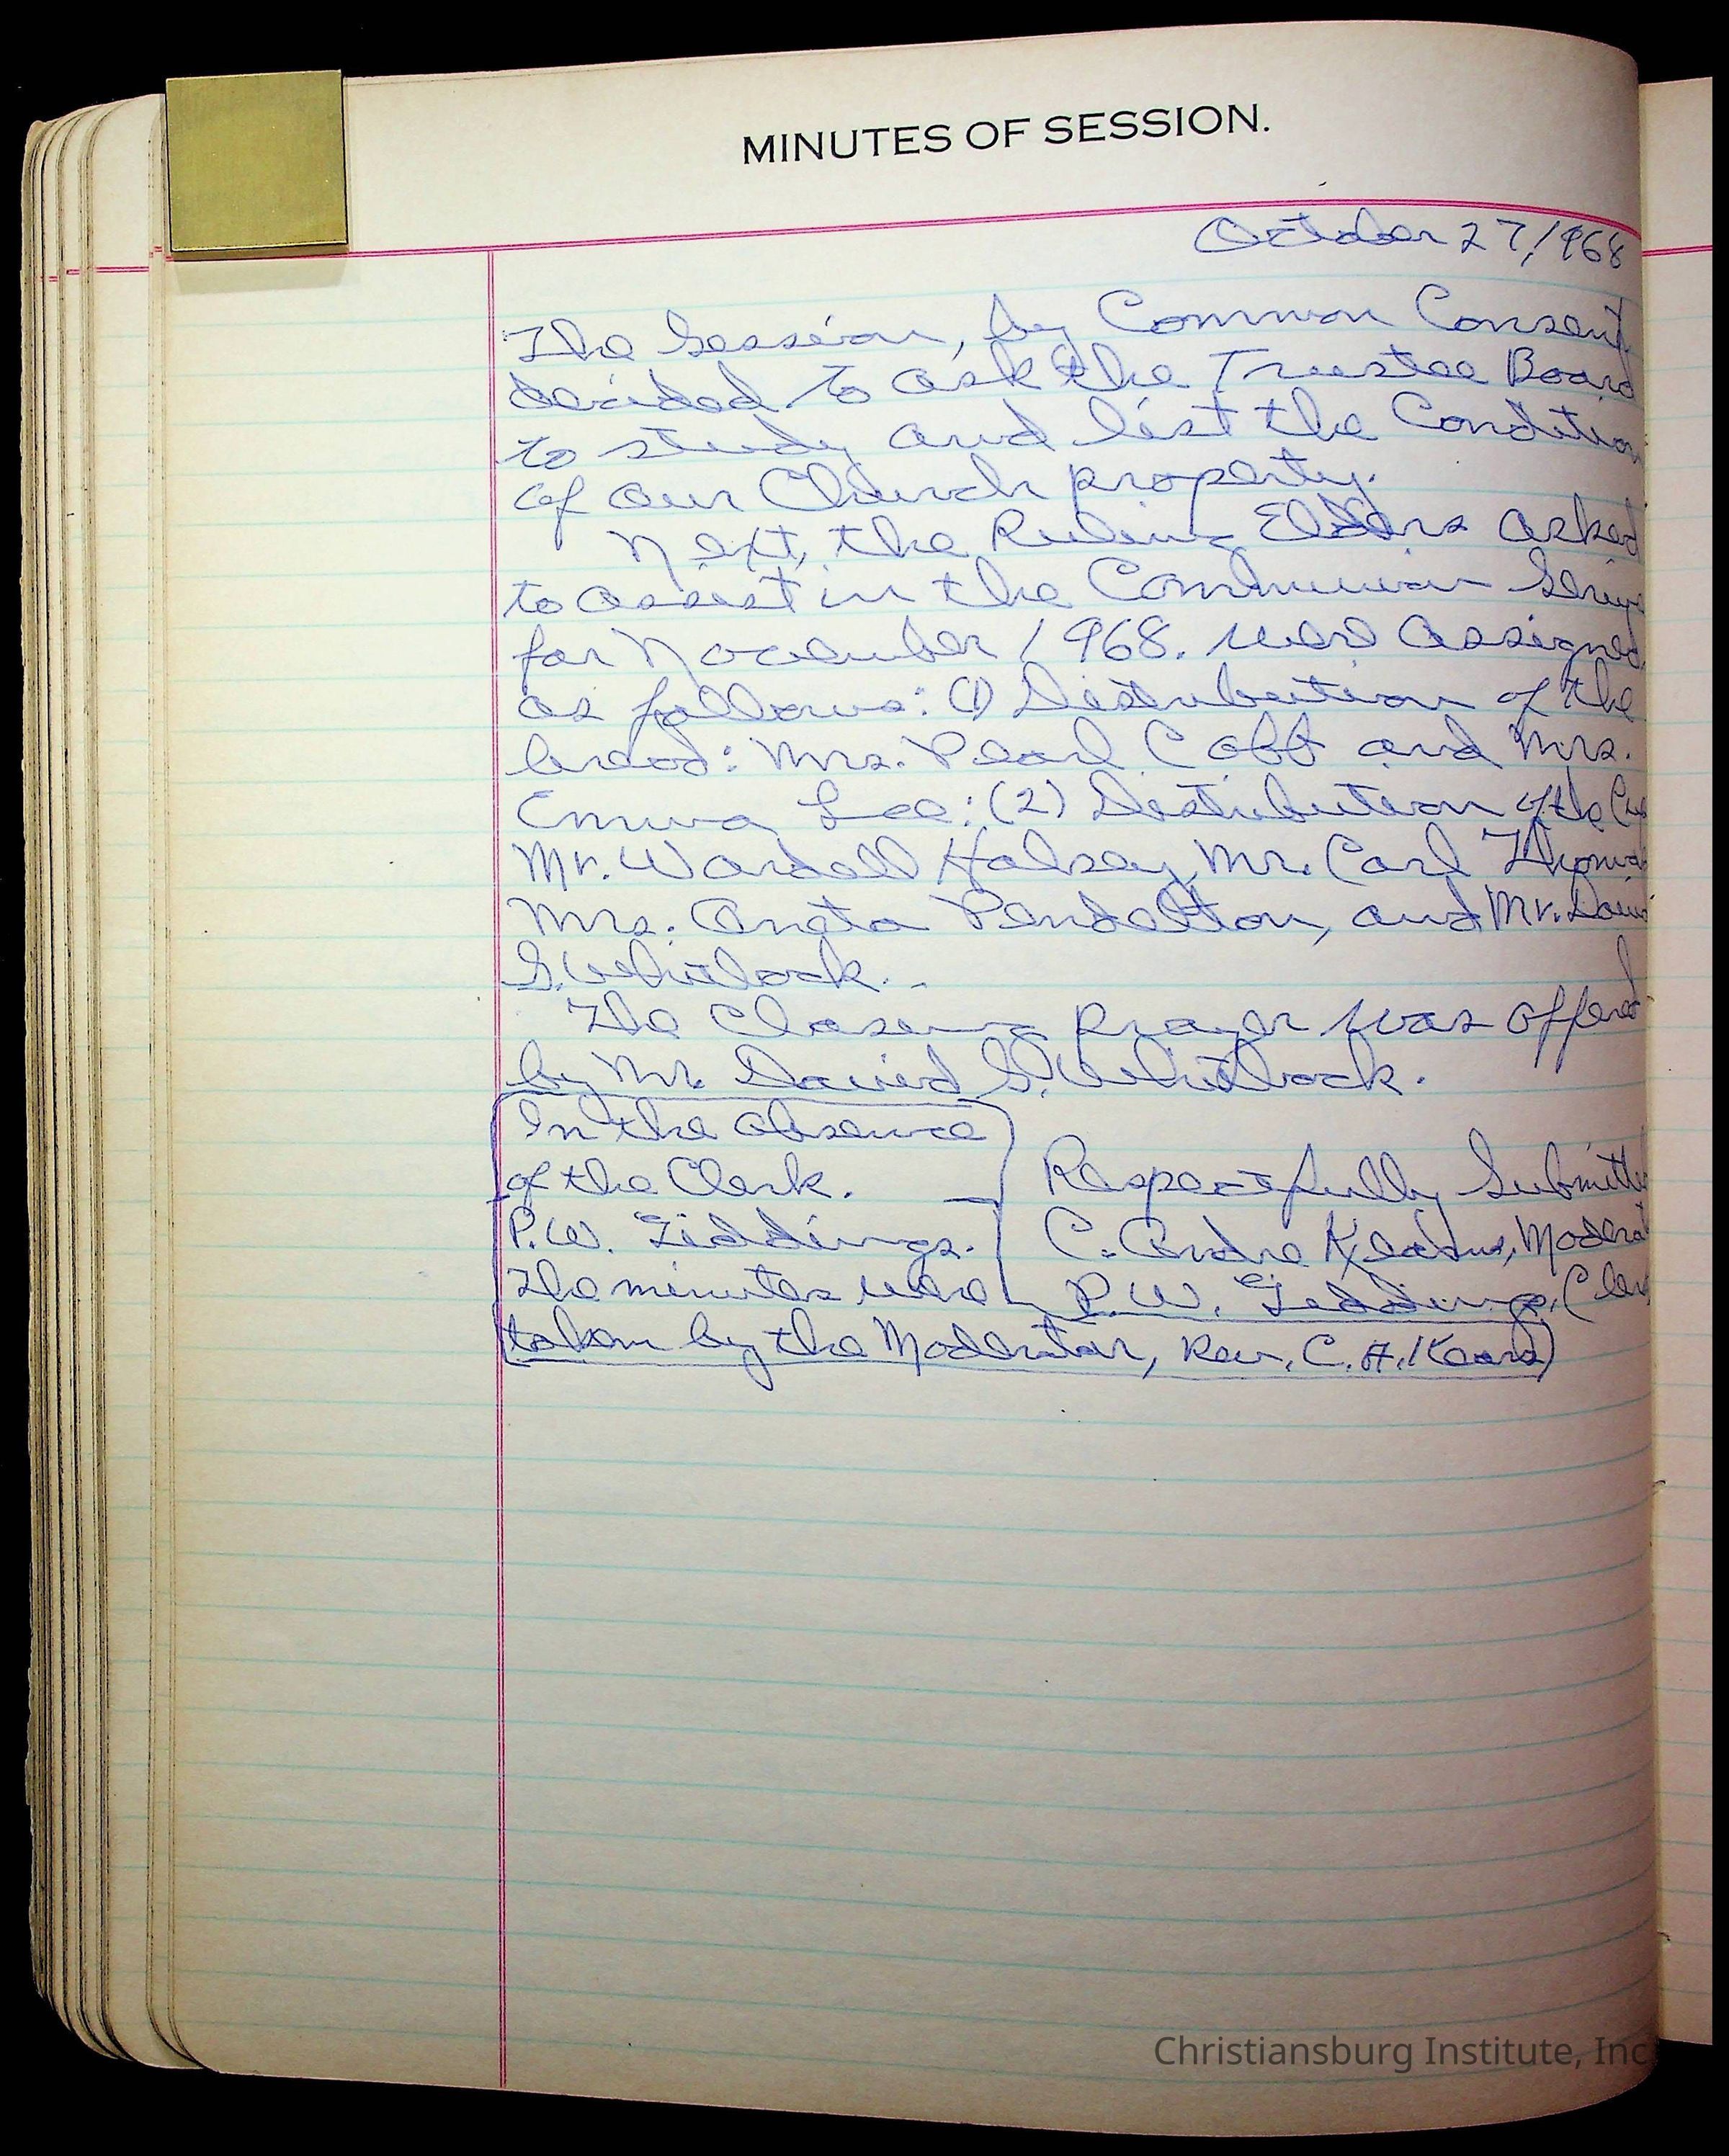 MINUTES OF SESSION.
October 27, 1968
The Session, by Common Consent
decided to ask the Trustee Board
to study and list the Condition
of our Church property.
Next, the Ruling Elders asked
to assist in the Communion
for November 1968. were assigned
as follows: (1) Distribution of the
bread: Mrs. Pearl Cobb and Mrs.
Emma Lee: (2) Distribution of the
Mr. Wardell Halsey, Mr. Carl
Mrs. Pendelton, and Mr. David
S. Whitlock.
The Closing prayer was offered
by Mr. David S. Whitlock.
In the absence
of the Clerk.
P.W. Giddings.
The minutes were
taken by the Moderator, Rev. C. A. Kearns)
Respectfully Submitted
C. Andre Kearns, Moderator
P.W. Giddings, Clerk
Christiansburg Institute, Inc